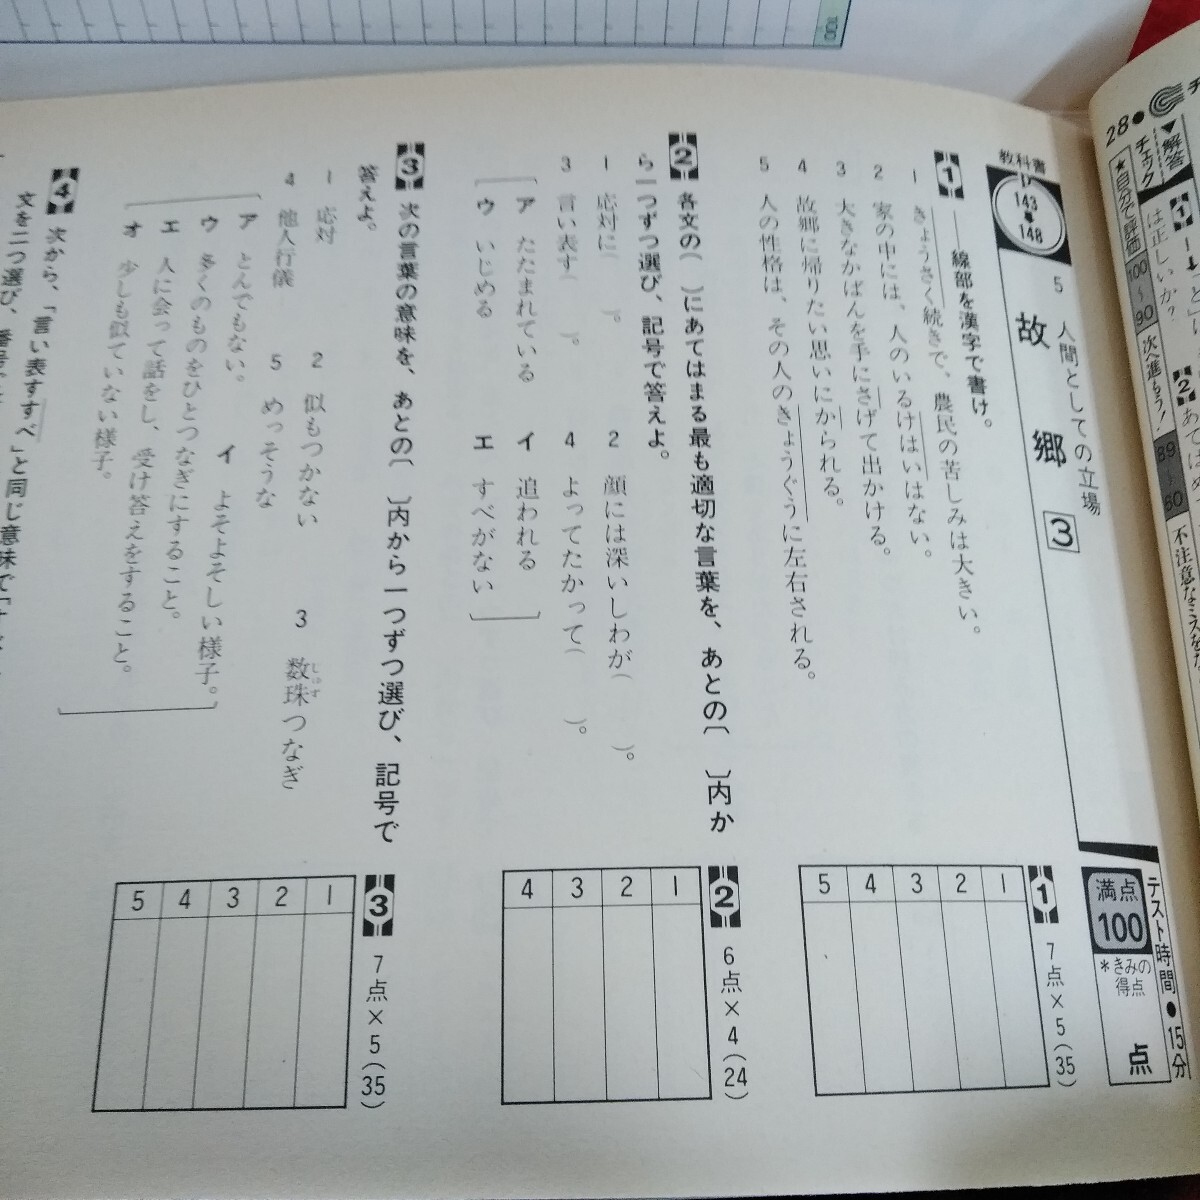 教科書
P143●148
5 人間としての立場
故郷 3
テスト時間●15分
満点100
*きみの得点
点
1 ――線部を漢字で書け。
1 きょうさく続きで、農民の苦しみは大きい。
2 家の中には、人のいるけはいはない。
3 大きなかばんを手にさげて出かける。
4 故郷に帰りたい思いにかられる。
5 人の性格は、その人のきょうぐうに左右される。
1 7点×5(35)
1
2
3
4
5
2 各文の( )にあてはまる最も適切な言葉を、あとの〔 〕内か
ら一つずつ選び、記号で答えよ。
1 応対に( )。
2 顔には深いしわが( )。
3 言い表す( )。
4 よってたかって( )。
ア たたまれている
イ 追われる
ウ いじめる
エ すべがない
2 6点×4(24)
1
2
3
4
3 次の言葉の意味を、あとの〔 〕内から一つずつ選び、記号で
答えよ。
1 応対
2 似もつかない
3 数珠つなぎ
じゅず
4 他人行儀
5 めっそうな
ア とんでもない。
イ よそよそしい様子。
ウ 多くのものをひとつなぎにすること。
エ 人に会って話をし、受け答えをすること。
オ 少しも似ていない様子。
3 7点×5(35)
1
2
3
4
5
4 次から、「言い表すすべ」と同じ意味で
文を二つ選び、番号で
28●
▼解答
チェック
*自分で評価
100〜90
次へ進もう!
89〜60
不注意なミスをな
1
は正しいか?
2 あてはめ
100